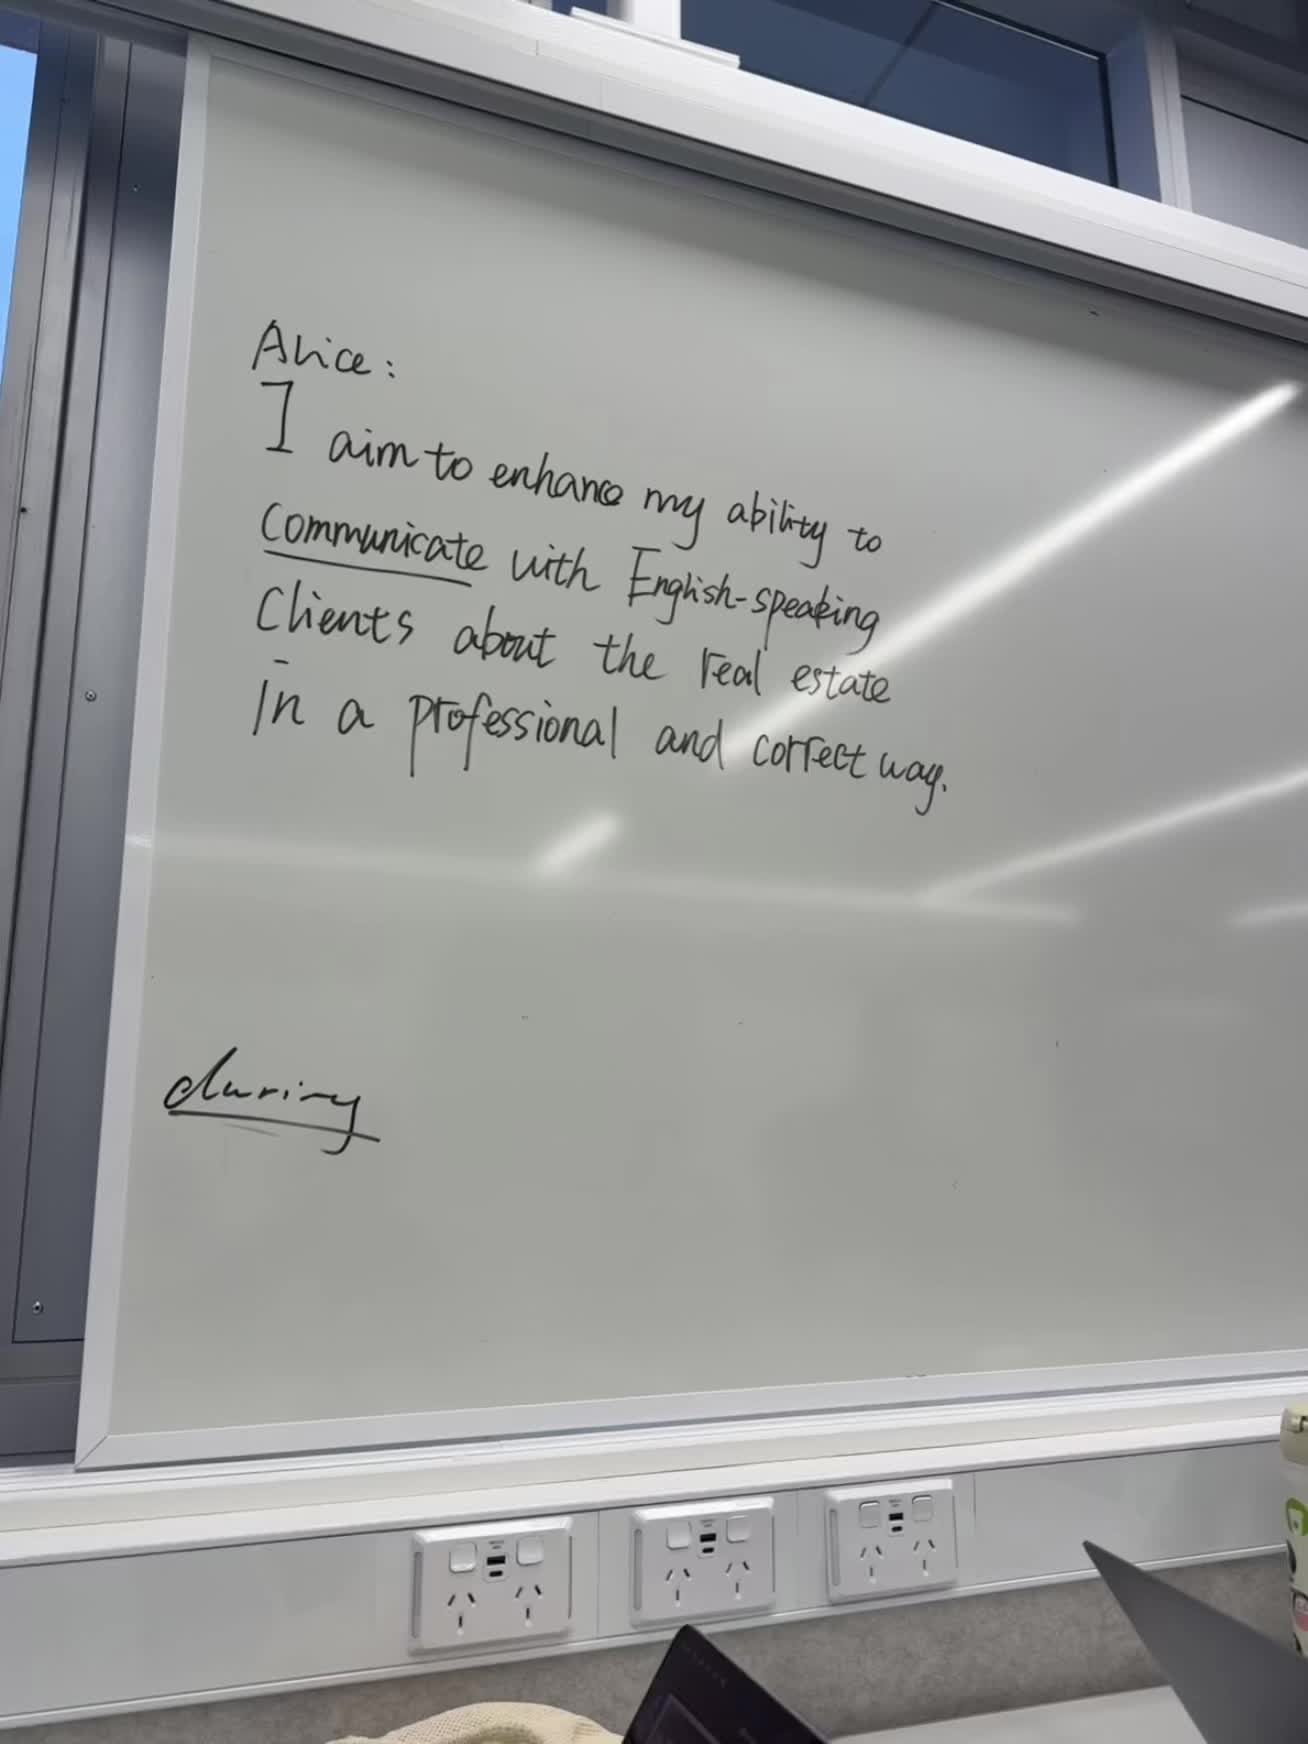 Alice:
I aim to enhance my ability to
communicate with English-speaking
Clients about the real estate
in a professional and correct way.
during